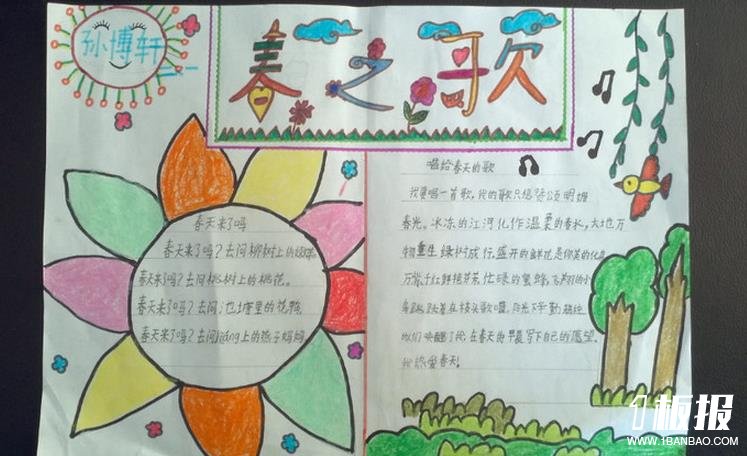 孙博轩
二一
春之歌
春天来了吗
春天来了吗?去问柳树上的
春天来了吗?去问桃树上的桃花。
春天来了吗?去问池塘里的花鸭
春天来了吗?去问liáng上的燕子妈妈
唱给春天的歌
我要唱一首歌,我的歌只想赞颂明媚
春光。冰冻的江河化作温柔的春水,大地万
物重生绿树成行,盛开的鲜花是你美的化身
万紫千红鲜艳芬芳。忙碌的蜜蜂,飞翔的小
鸟跳跃着在枝头歌唱。阳光下
你们唤醒了我在春天的早晨写下自己的愿望。
我热爱春天!
1板报
WWW.1BANBAO.COM